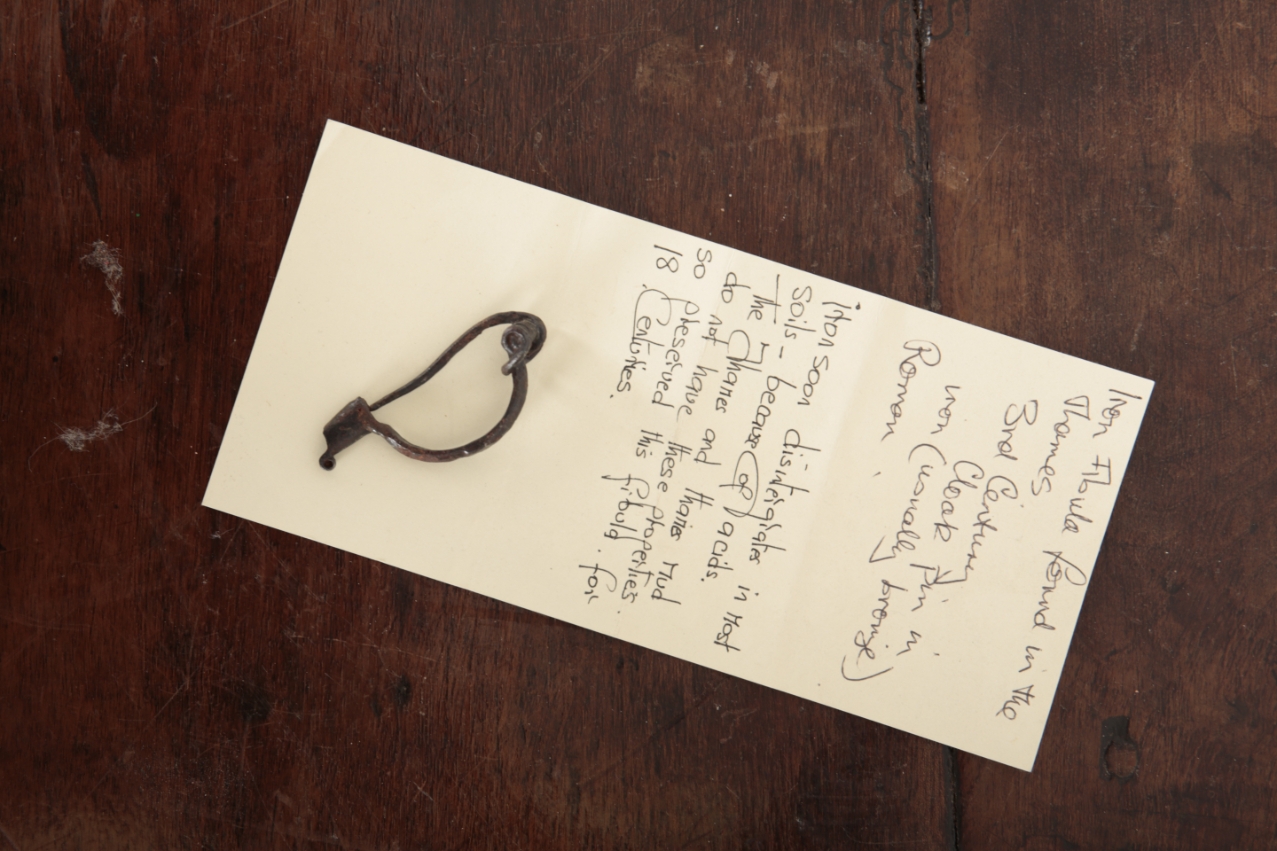 Iron Fibula found in the
Thames
3rd Century
Cloak Pin in
iron (usually bronze)
Roman .
Iron soon disintegrates in Most
Soils - because of acids.
— the Thames and Thames Mud
do not have these properties.
so preserved this fibula. for
18 Centuries.